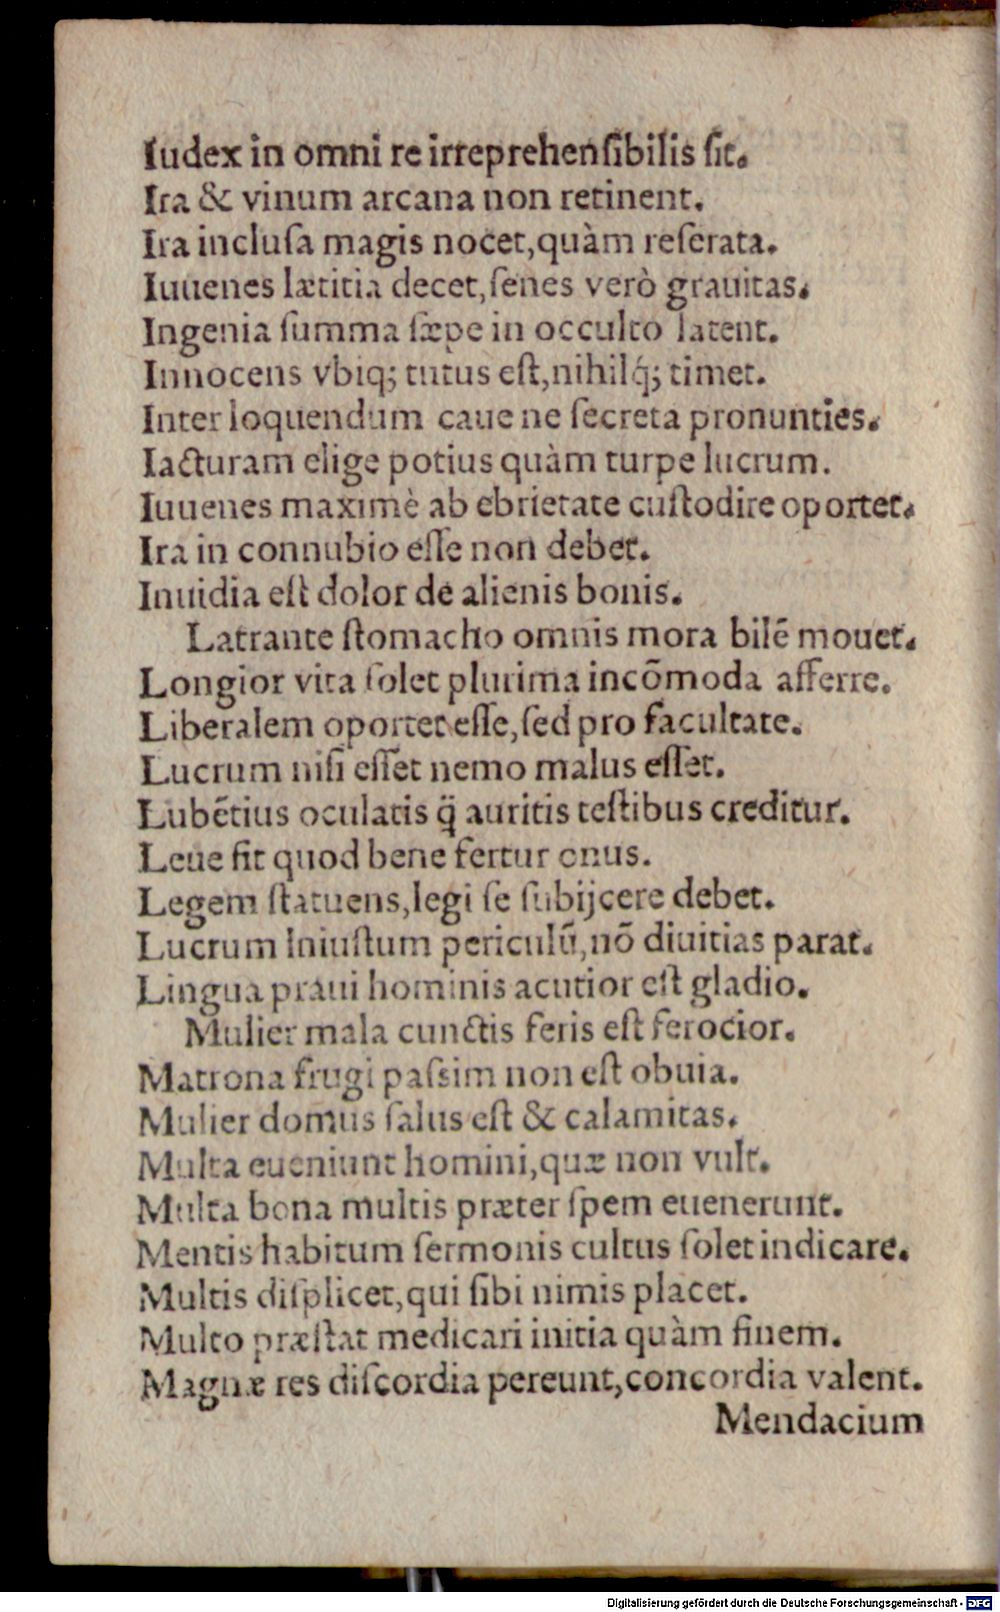 Iudex in omni re irreprehenſibilis ſit.
Ira & vinum arcana non retinent.
Ira incluſa magis nocet,quàm reſerata.
Iuuenes lætitia decet,ſenes verò grauitas.
Ingenia ſumma ſæpe in occulto latent.
Innocens vbiq; tutus eſt,nihilq́; timet.
Inter loquendum caue ne ſecreta pronunties.
Iacturam elige potius quàm turpe lucrum.
Iuuenes maximè ab ebrietate cuſtodire oportet.
Ira in connubio eſſe non debet.
Inuidia eſt dolor de alienis bonis.
Latrante ſtomacho omnis mora bilē mouet.
Longior vita ſolet plurima incōmoda afferre.
Liberalem oportet eſſe,ſed pro facultate.
Lucrum niſi eſſet nemo malus eſſet.
Lubētius oculatis q̈ auritis teſtibus creditur.
Leue fit quod bene fertur onus.
Legem ſtatuens,legi ſe ſubijcere debet.
Lucrum iniuſtum periculū,nō diuitias parat.
Lingua praui hominis acutior eſt gladio.
Mulier mala cunctis feris eſt ferocior.
Matrona frugi paſsim non eſt obuia.
Mulier domus ſalus eſt & calamitas.
Multa eueniunt homini,quæ non vult.
Multa bona multis præter ſpem euenerunt.
Mentis habitum ſermonis cultus ſolet indicare.
Multis diſplicet,qui ſibi nimis placet.
Multo præſtat medicari initia quàm finem.
Magnæ res diſcordia pereunt,concordia valent.
Mendacium
Digitalisierung gefördert durch die Deutsche Forschungsgemeinschaft - DFG